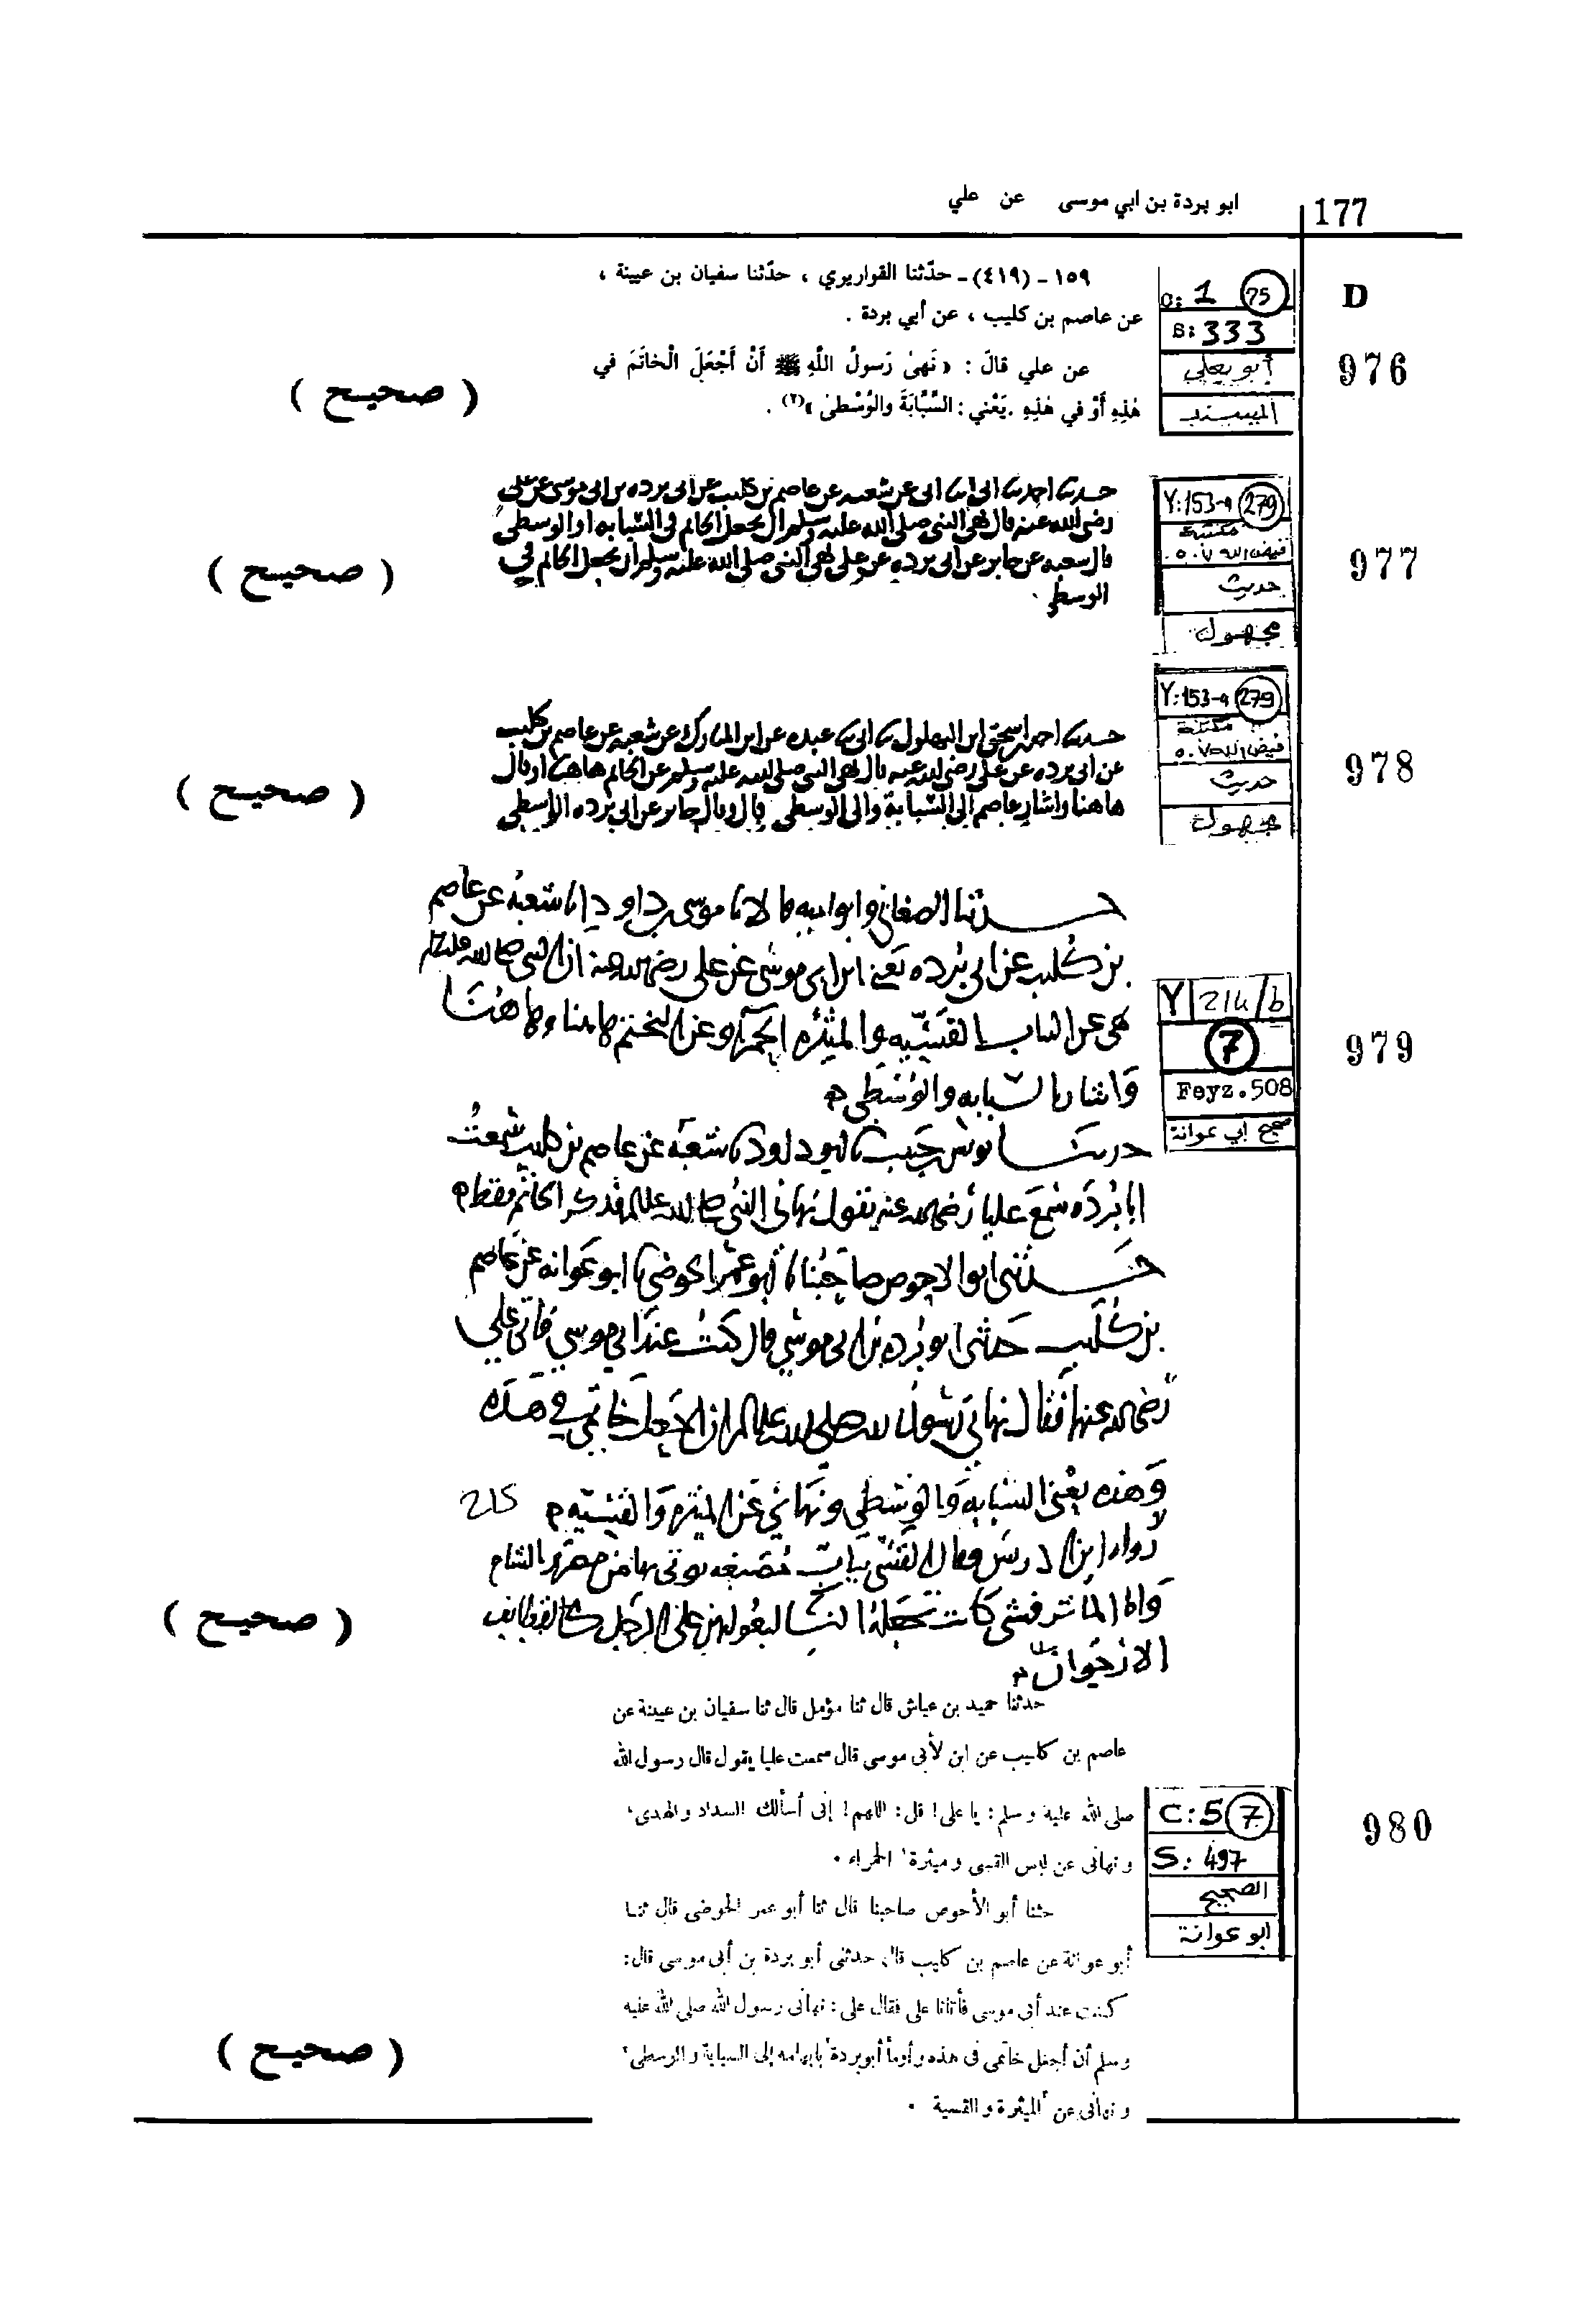 177
ابو بردة بن ابي موسى عن علي
D
976
C: 1 (75)
S: 333
أبو يعلى
المسند
١٥٩ - (٤١٩) - حدّثنا القواريري ، حدّثنا سفيان بن عيينة ،
عن عاصم بن كليب ، عن أبي بردة .
عن علي قالَ : « نَهىٰ رَسولُ اللَّهِ ﷺ أَنْ أَجْعَلَ الْخاتَمَ في
هٰذِهِ أَوْ في هٰذِهِ . يَعْني : السَّبَّابَةَ والوُسْطىٰ »(٢) .
( صحيح )
977
Y: 153-a (279)
مكتبة
فيض الله ٥٠٧
حديث
مجهول
حدثنا احمد ثنا ابى ثنا ابى عن شعبه عن عاصم بن كليب عن ابى برده بن ابى موسى عن على
رضى الله عنه قال نهى النبى صلى الله عليه وسلم ان يجعل الخاتم فى السبابه او الوسطى
قال شعبه عن جابر عن ابى برده عن على نهى النبى صلى الله عليه وسلم ان يجعل الخاتم في
الوسطى
( صحيح )
978
Y: 153-a (279)
مكتبة
فيض الله ٥٠٧
حديث
مجهول
حدثنا احمد بن اسحق ابن البهلول ثنا ابى ثنا عبده عن ابن المبارك عن شعبه عن عاصم بن كليب
عن ابى برده عن على رضى الله عنه قال نهى النبى صلى الله عليه وسلم عن الخاتم هاهنا او قال
هاهنا واشار عاصم إلى السبابة والى الوسطى قال وقال جابر عن ابى برده الوسطى
( صحيح )
979
Y 214/b
7
Feyz. 508
صحيح ابي عوانة
حدثنا الصغاني وابو اميه قالا ثنا موسى بن داود ثنا شعبه عن عاصم
بن كليب عن ابى برده يعني ابن ابى موسى عن على رضى الله عنه ان النبى صلى الله عليه وسلم
نهى عن الثياب القسيه والميثره الحمرا وعن التختم هاهنا وهاهنا
واشار بالسبابه والوسطى
حدثنا يونس بن حبيب ثنا ابو داود ثنا شعبه عن عاصم بن كليب سمعت
ابا برده سمع عليا رضى الله عنه يقول نهانى النبي صلى الله عليه فذكر الخاتم فقط
حدثنى ابو الاحوص صاحبنا ثنا ابو عمر الحوضى ثنا ابو عوانه عن عاصم
بن كليب حدثنى ابو برده بن ابى موسى قال كنت عند ابي موسي فاتى على
رضى الله عنهما فقال نهانى رسول الله صلى الله عليه وسلم ان اجعل خاتمى في هذه
وهذه يعنى السبابه والوسطى ونهاني عن الميثره والقسيه
215
رواه ابن ادريس وقال القسى ثياب مضلعه يوتى بها من مصر والشام
واما المياثر فشى كانت تجعله النسا لبعولتهن على الرحل كالقطايف
الارجوان
( صحيح )
980
C: 5 (7)
S: 497
الصحيح
ابو عوانة
حدثنا حميد بن عياش قال ثنا مؤمل قال ثنا سفيان بن عيينة عن
عاصم بن كليب عن ابن لأبى موسى قال سمعت عليا يقول قال رسول الله
صلى الله علية و سلم : يا على ! قل : اللهم ! إنى أسألك السداد و الهدى ،
و نهانى عن لبس القسى و ميثرة الحمراء .
حثنا أبو الأحوص صاحبنا قال ثنا أبو عمر الحوضى قال ثنا
أبو عوانة عن عاصم بن كليب قال حدثنى أبو بردة بن أبى موسى قال :
كنت عند أبى موسى فأتانا على فقال على : نهانى رسول الله صلى الله عليه
و سلم أن أجعل خاتمى فى هذه و أومأ أبو بردة بابهامه إلى السبابة و الوسطى
و نهانى عن الميثرة و القسية .
( صحيح )